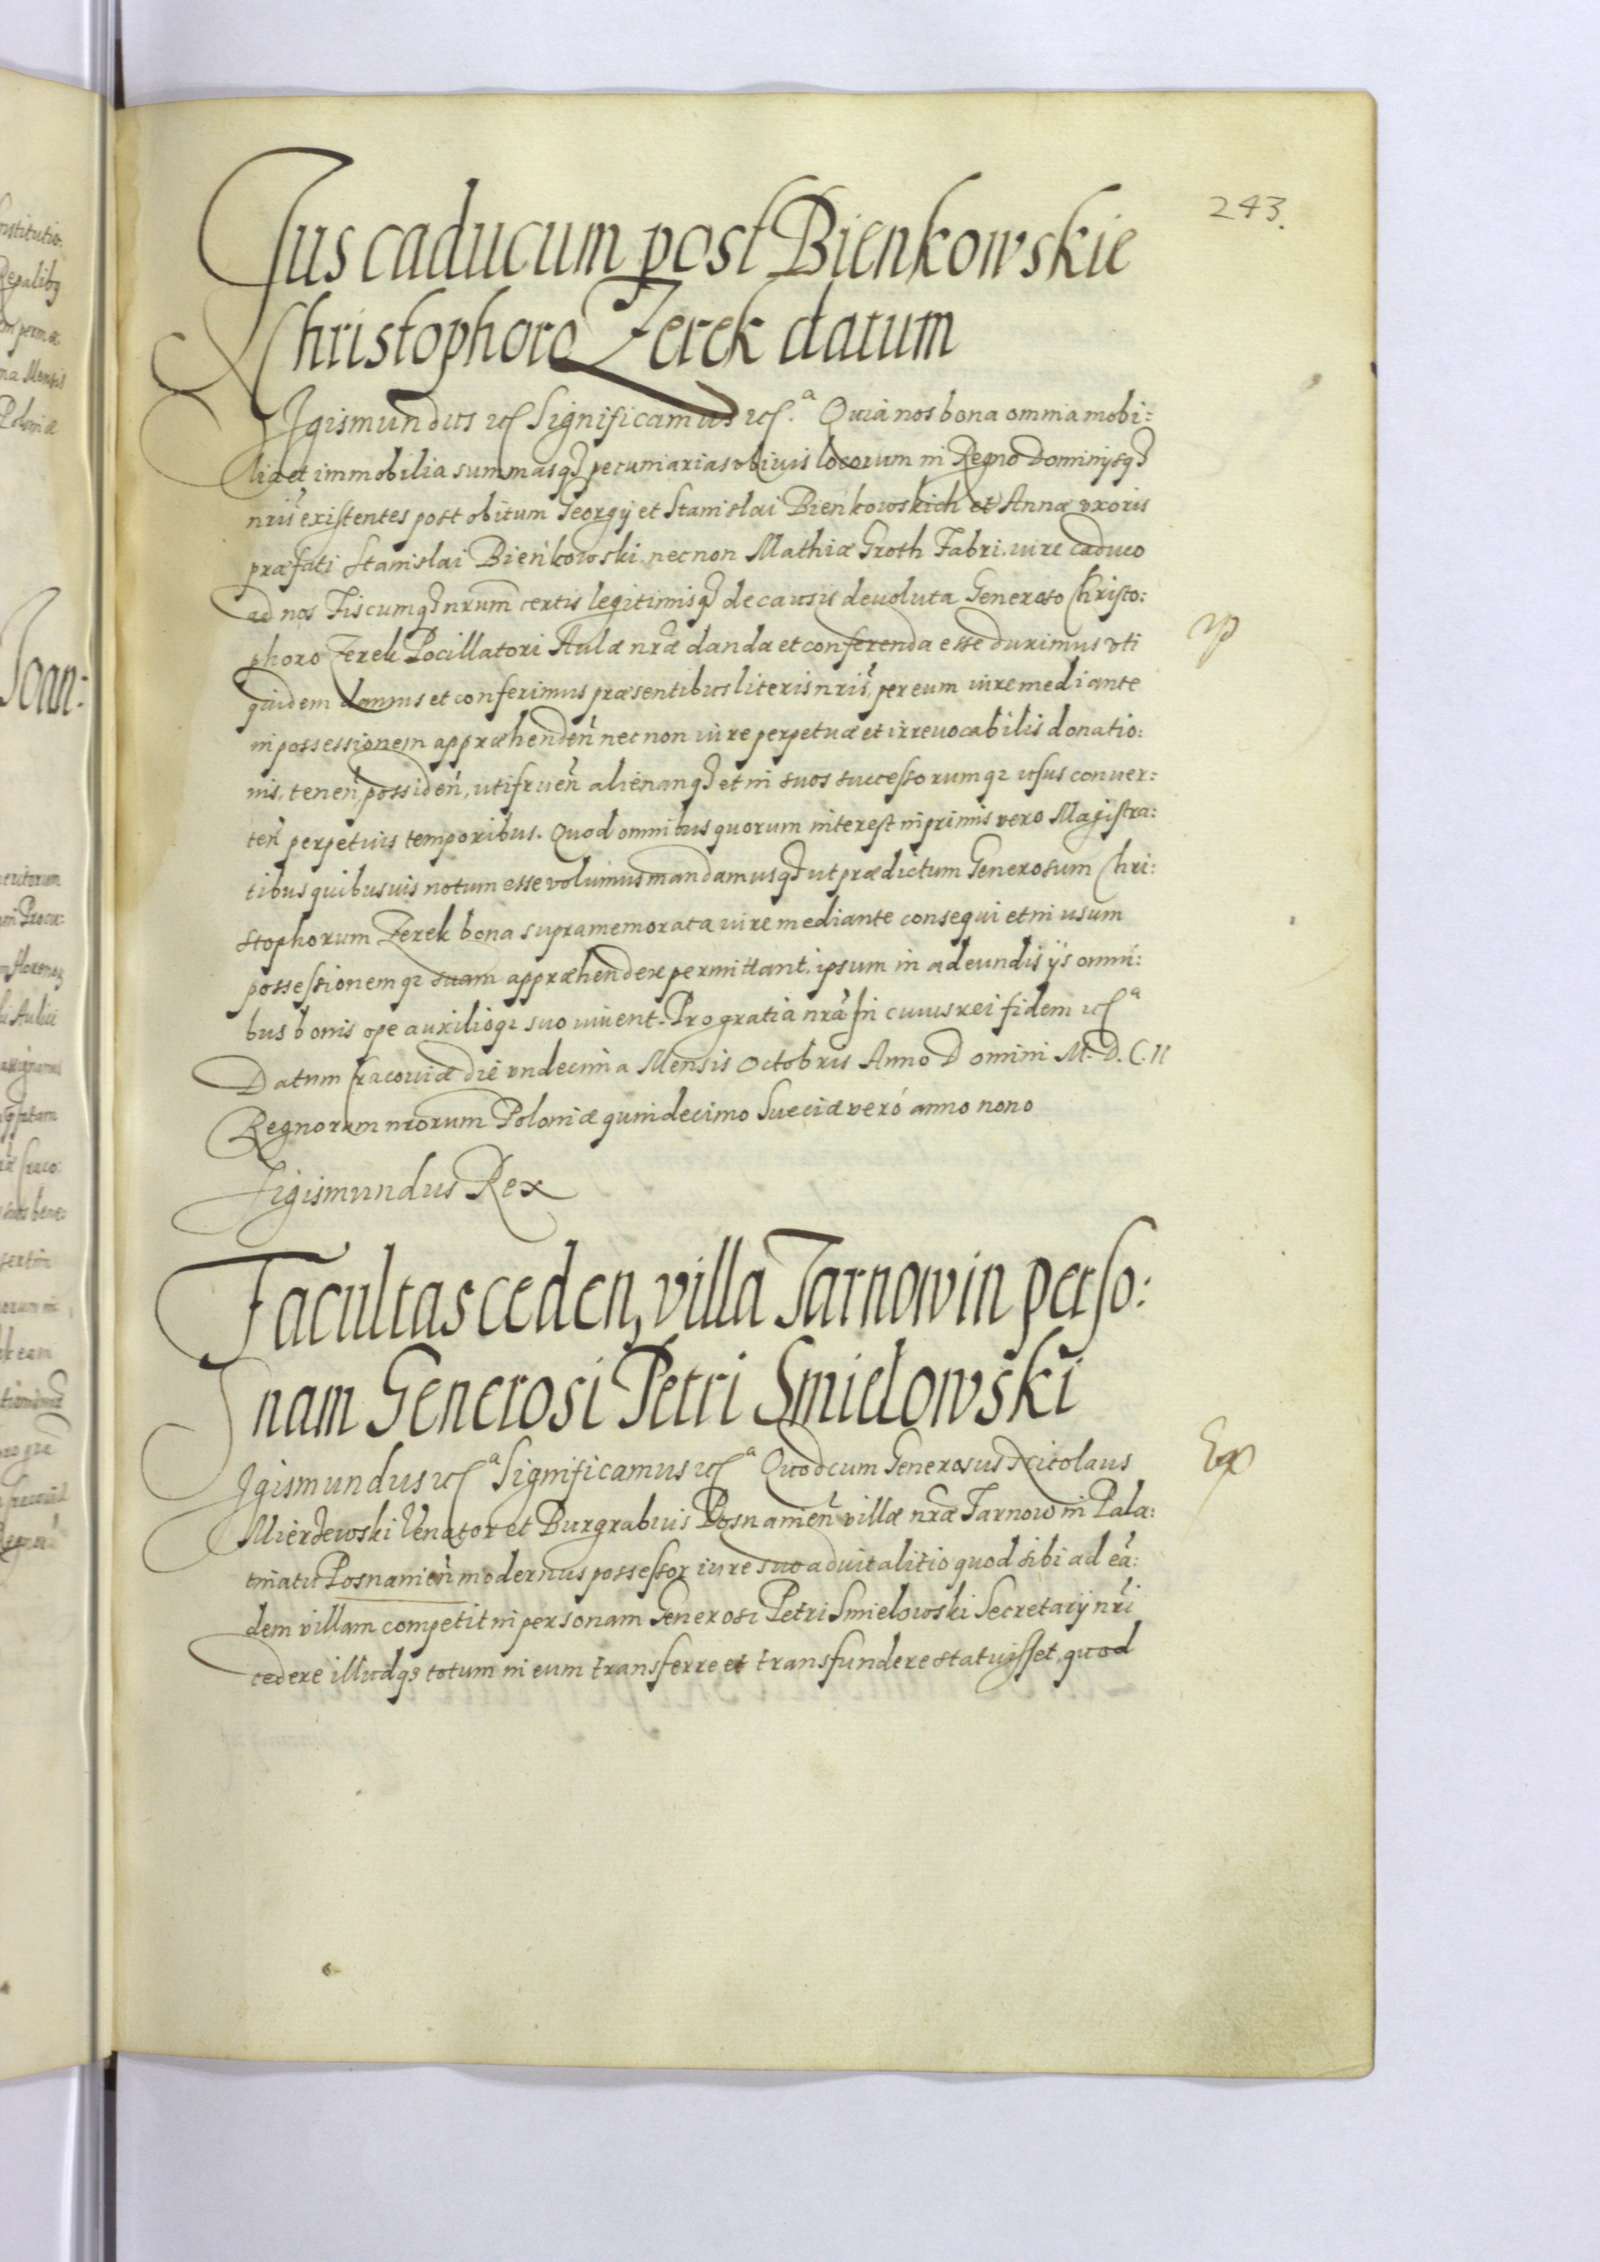 243.
Jus caducum post Bienkowskie
Christophoro Zerek datum
Sigismundus etc Significamus etc.ª Quia nos bona omnia mobi:
lia et immobilia summasq₃ pecuniarias vbivis locorum in Regno Dominijsq₃
nris existentes post obitum Georgij et Stanislai Bienkowskich et Annæ vxoris
præfati Stanislai Bieńkowski, necnon Mathiæ Groth Fabri, iure caduco
ad nos Fiscumq₃ nrum certis legitimisq₃ de causis devoluta Generoso Christo:
phoro Zerek Pocillatori Aulæ nræ danda et conferenda esse duximus vti
quidem damus et conferimus præsentibus literis nris, per eum iure mediante
in possessionem appræhendeń necnon iure perpetuæ et irrevocabilis donatio:
nis, teneń, possideń, utifrueń alienanq₃ et in suos successorumq₃ usus conver:
teń perpetuis temporibus. Quod omnibus quorum interest inprimis vero Magistra:
tibus quibusuis notum esse volumus mandamusq₃ ut prædictum Generosum Chri:
stophorum Zerek bona supramemorata iure mediante consequi et in usum
possessionemq₃ suam appræhendere permittant, ipsum in adeundis ijs omni:
bus bonis ope auxilioq₃ suo iuvent. Pro gratia nra In cuius rei fidem etcª
Datum Cracoviæ die vndecima Mensis Octobris Anno Domini M. D. C. II
Regnorum nrorum Poloniæ quindecimo Sueciæ veró anno nono
Sigismundus Rex
Facultas ceden, villa Tarnow in perso:
nam Generosi Petri Smielowski
Sigismundus etcª Significamus etcª Quod cum Generosus Nicolaus
Mierzewski Venator et Burgrabius Posnanień villæ nræ Tarnow in Pala:
tinatu Posnanień modernus possessor iure suo aduitalitio quod sibi ad ea:
dem villam competit in personam Generosi Petri Smielowski Secretarij nri
cedere illudq₃ totum in eum transferre et transfundere statuisset, quod